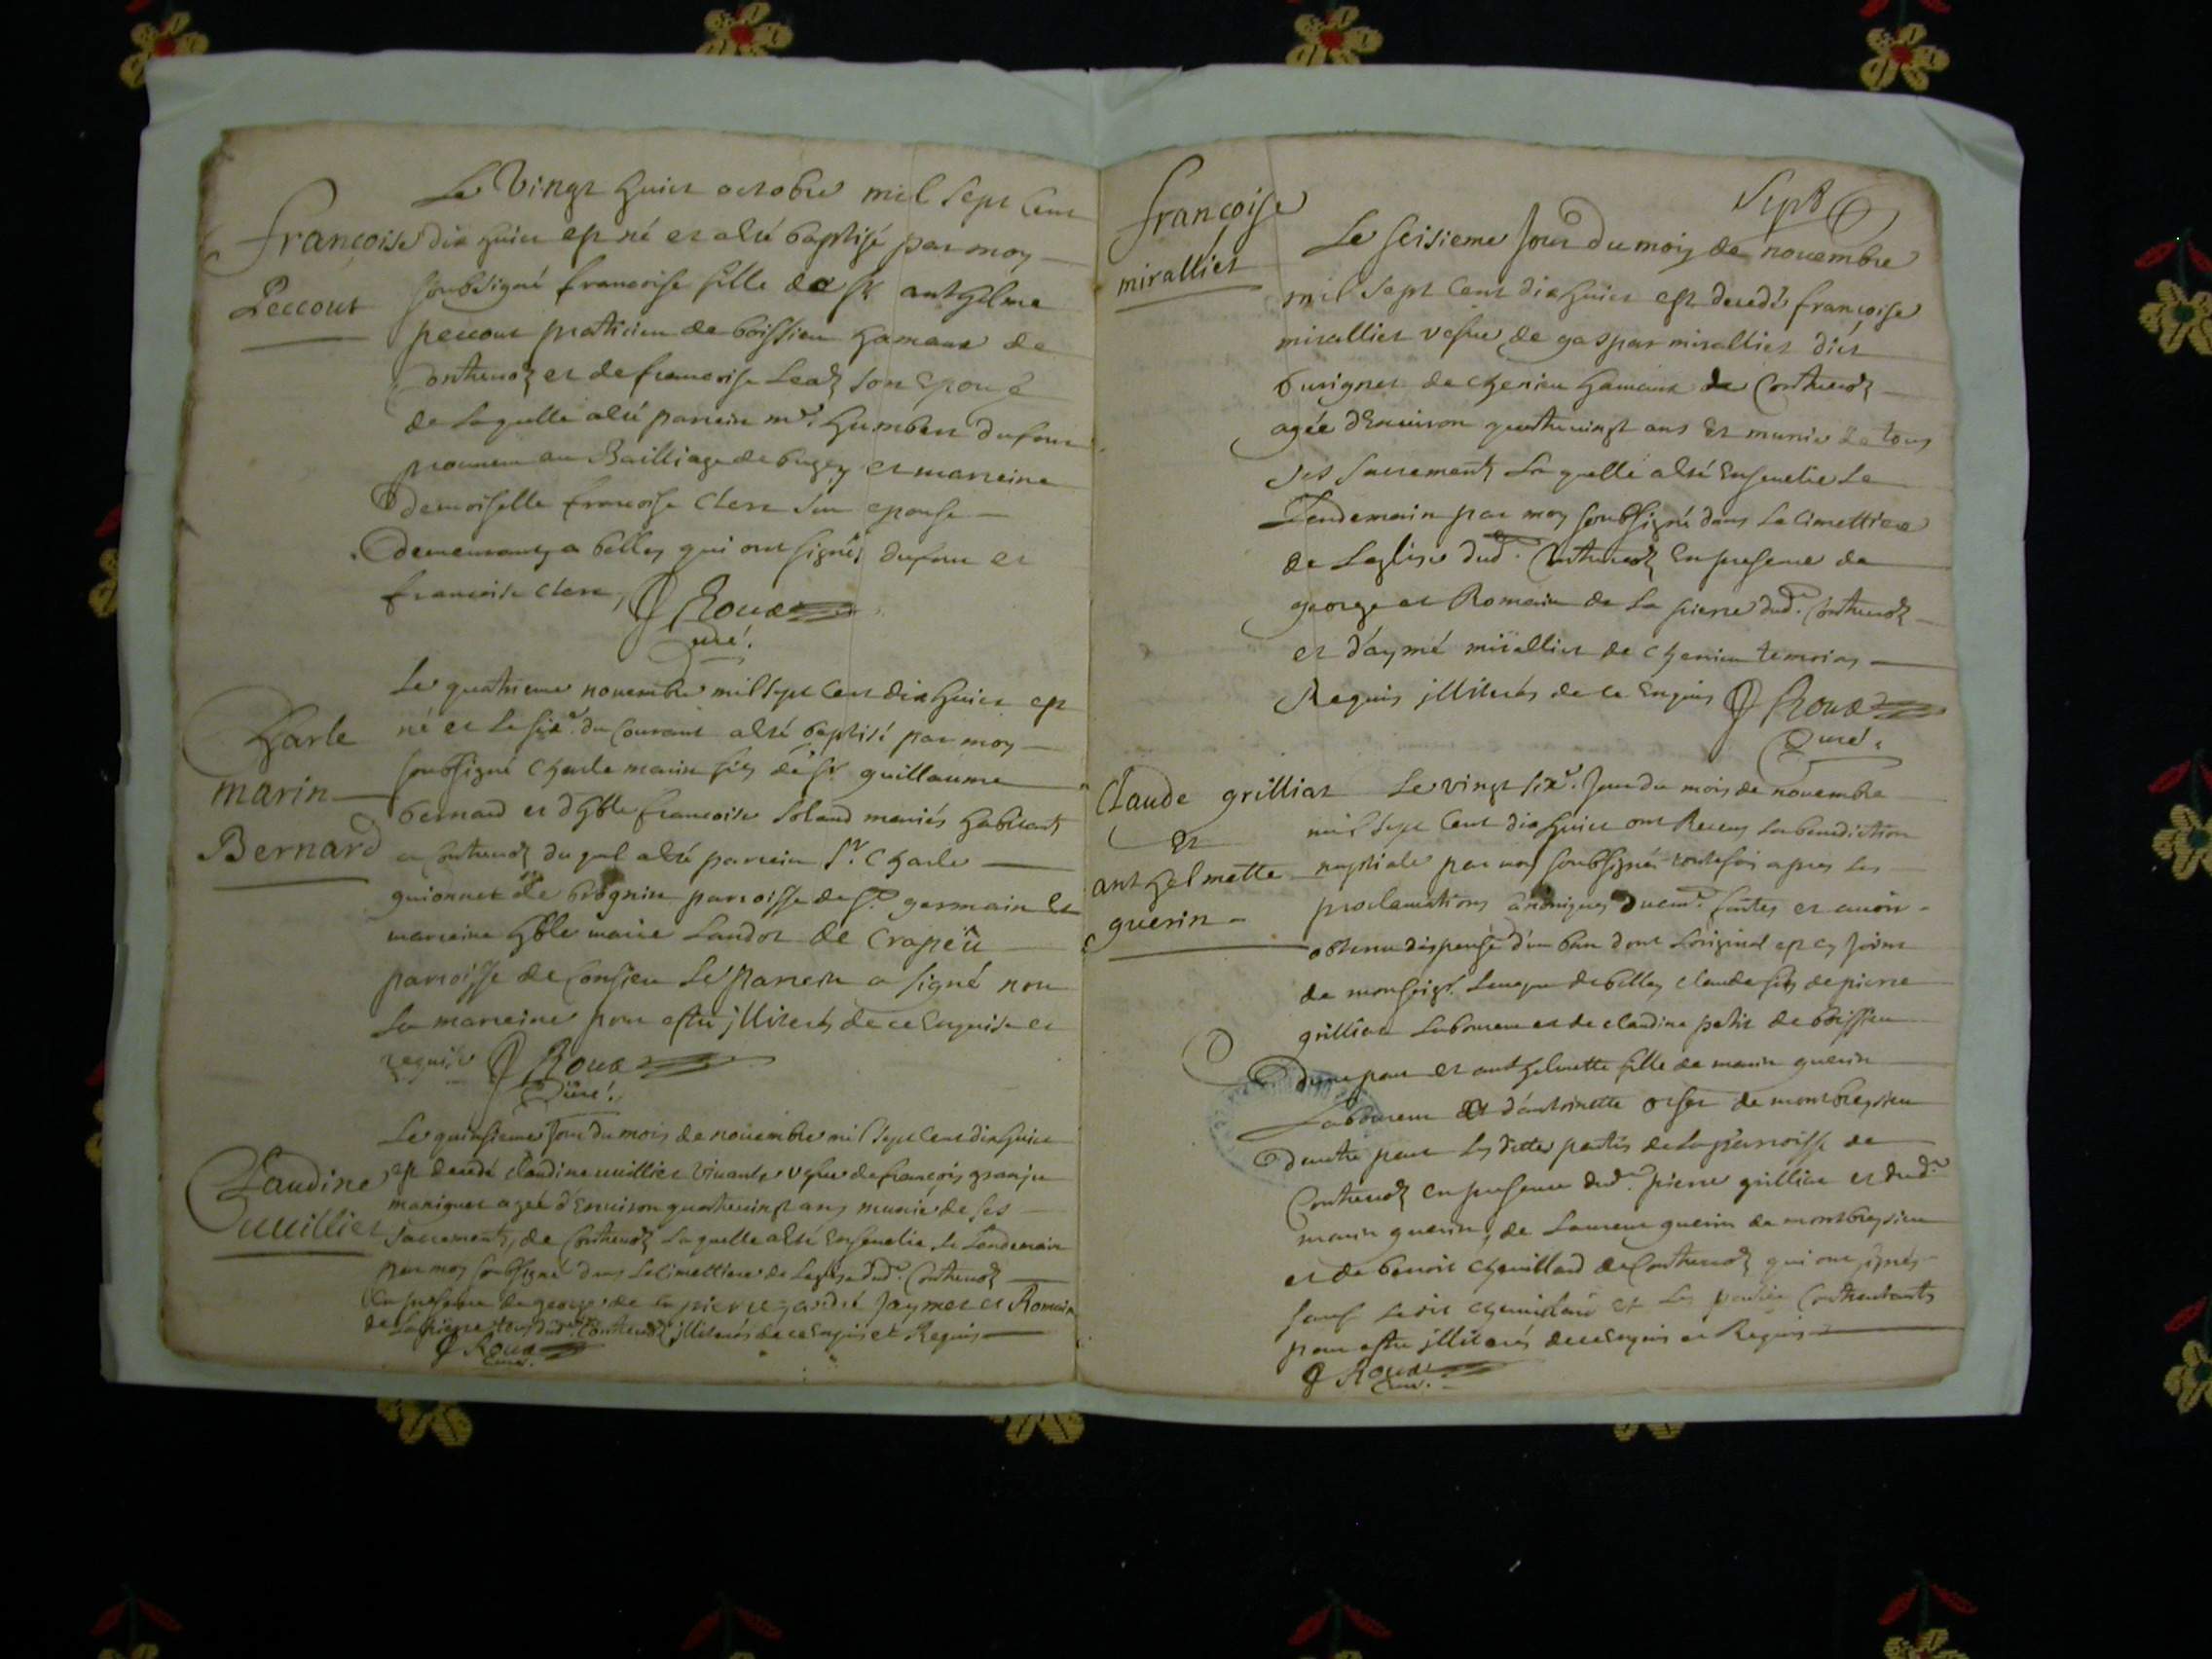 Le Vingt huict octobre mil sept cent
françoise dix huict est né et a esté baptisé par moy
Peccout soubsigné francoise fille de Sr anthelme
peccout praticien de boissieu hameau de
Contrevoz et de francoise son epouse
de laquelle a esté parrein mre humbert dufour
procureur au Bailliage de bugey et marreine
demoiselle francoise Clerc son epouse
demeurants a belley qui ont signés dufour et
francoise Clerc, J Roux
Curé.
Le quatrieme novembre mil sept cent dix huict est
Charle né et le sixe. du Courant a esté baptisé par moy
marin soubsigné Charle marin fils de Sr. guillaume
Bernard bernard et dhble francoise soland mariés habitants
a Contrevoz du quel a esté parrein Sr. Charle
guionnet de brognin parroisse de St. germain et
marreine hble marie Landoz de Crapeü
parroisse de Conzieu Le parrein a signé non
la marreine pour estre jlliterés de ce Enquise et
requise J Roux
Curé.
Le quinsieme jour du mois de novembre mil sept Cent dix huict
Claudine est decedé Claudine cuillier vivante vefve de françois
Cuillier agée d'Environ quattrevingt ans munie de ses
sacrements, de Contrevoz laquelle a esté Ensevelie le Lendemain
par moy soubsigné dans le cimettiere de Leglise dud. Contrevoz
En presence de george de la pierre, andré jaymet et Romain
de la pierre tous dud. Contrevoz jlliterés de ce Enquis et Requis
J Roux
Curé.
Sept
françoise Le seisieme jour du mois de novembre
mirallier mil sept Cent dix huict est decedé françoise
mirallier vefve de gaspar mirallier dict
de chenieu hameau de Contrevoz
agée d'Environ quattrevingt ans Et munie de tous
ses sacrements Laquelle a esté Ensevelie Le
Lendemain par moy soubsigné dans le Cimettiere
de Leglise dud. Contrevoz En presence de
george et Romain de La pierre dud. Contrevoz
et d'aymé mirallier de chenieu temoins
Requis jlliterés de ce Enquis J Roux
Curé.
Claude grilliat Le vingt sixe. Jour du mois de novembre
Et mil sept Cent dix huict ont Receu la benediction
anthelmette nuptiale par moy soubsigné toutefois apres les
guerin proclamations canoniques duemt. faites et avoir
obtenu dispense d'un ban dont Loriginal est cy joint
de monseigr. Leveque de belley claude fils de pierre
grilliat Laboureur et de claudine petit de boissieu
d'une part et anthelmette fille de marin guerin
Laboureur Et d'antoinette de montbreysieu
d'autre part Les dittes parties de la parroisse de
Contrevoz En presence dud. pierre grilliat et dud.
marin guerin, de Laurent guerin de montbreysieu
et de benoit chevillard de Contrevoz qui ont signés
sauf ledit chevillard Et Les parties Contractants
pour estre jlliterés de ce Enquis et Requis
J Roux
Curé.